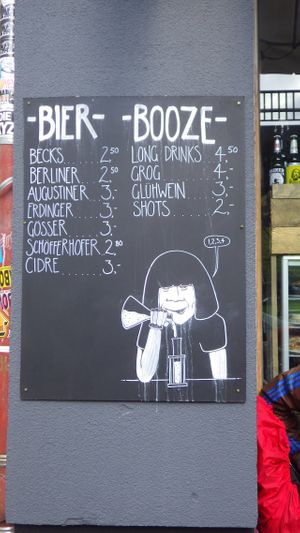 -BIER-
BECKS ........ 2.50
BERLINER ..... 2.50
AUGUSTINER ... 3,-
ERDINGER ..... 3,-
GÖSSER ....... 3,-
SCHÖFFERHOFER . 2.80
CIDRE ........ 3,-
-BOOZE-
LONG DRINKS .. 4.50
GROG ......... 4,-
GLÜHWEIN ..... 3,-
SHOTS ........ 2,-
1,2,3,4